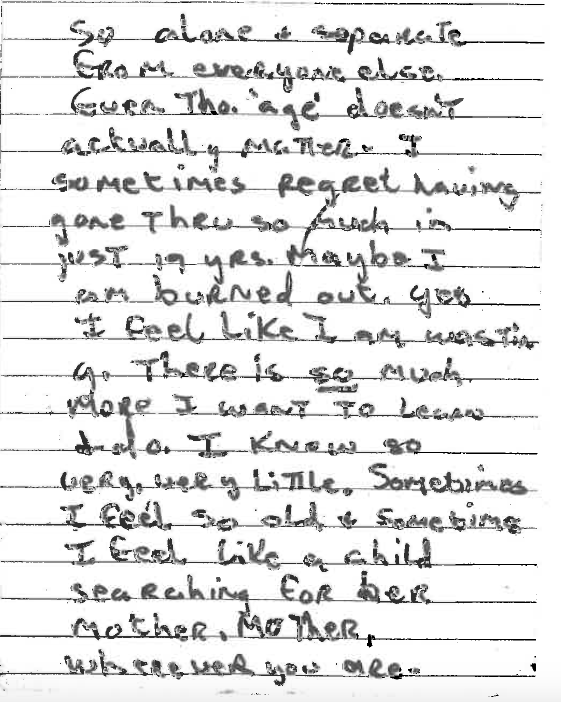 So alone & separate
from everyone else.
Even Tho. 'age' doesn't
actually matter. I
sometimes regret having
gone Thru so much in
just 19 yrs. Maybe I
am burned out. yes
I feel Like I am wastin
g. There is so much
More I want To Learn
& do. I Know so
very, very Little. Sometimes
I feel so old & sometime
I feel like a child
searching for her
mother. MoTher,
wherever you are.